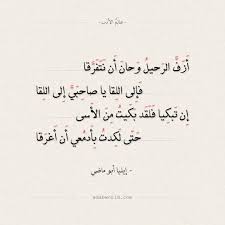 عالم الأدب
أَزَفَ الرَحيلُ وَحانَ أَن نَتَفَرَّقا
فَإِلى اللِقا يا صاحِبَيَّ إِلى اللِقا
إِن تَبكِيا فَلَقَد بَكَيتُ مِنَ الأَسى
حَتّى لَكِدتُ بِأَدمُعي أَن أَغرَقا
- إيليا أبو ماضي
adabworld.com